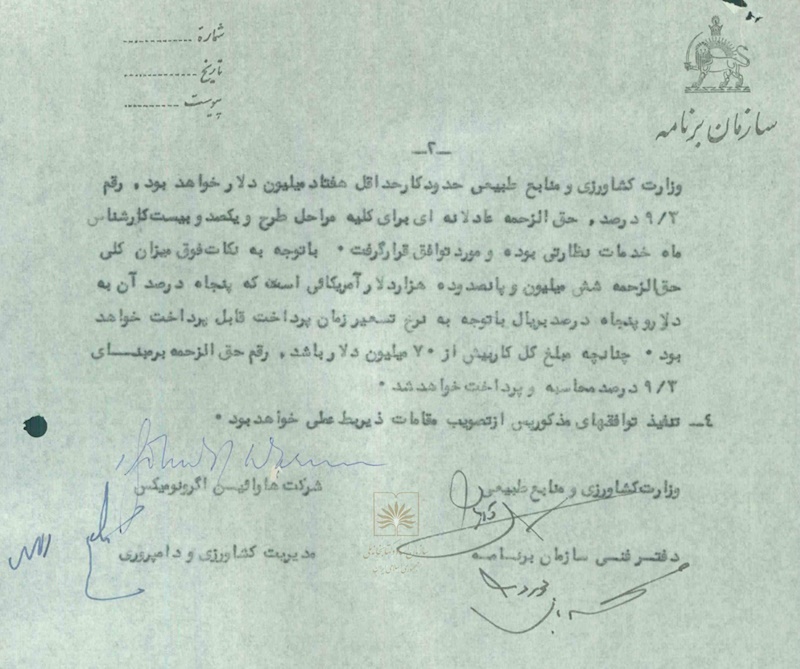 شماره ...............
تاریخ ...............
پیوست ...............
سازمان برنامه
ـ۲ـ
وزارت کشاورزی و منابع طبیعی حدودکارحداقل هفتاد میلیون دلار خواهد بود، رقم
۹/۳ درصد، حق الزحمه عادلانه ای برای کلیه مراحل طرح و یکصد و بیست کارشناس
ماه خدمات نظارتی بوده و مورد توافق قرارگرفت • باتوجه به نکات فوق میزان کلی
حق‌الزحمه شش میلیون و پانصدوده هزاردلار آمریکائی است که پنجاه درصد آن به
دلار و پنجاه درصد بریال باتوجه به نرخ تسعیر زمان پرداخت قابل پرداخت خواهد
بود • چنانچه مبلغ کل کار بیش از ۷۰ میلیون دلار باشد، رقم حق الزحمه برمبنای
۹/۳ درصد محاسبه و پرداخت خواهد شد •
۴ــ تنفیذ توافقهای مذکور پس از تصویب مقامات ذیربط عملی خواهد بود •
وزارت کشاورزی و منابع طبیعی شرکت هاوائیس اگرونومیکس
دفتر فنی سازمان برنامه مدیریت کشاورزی و دامپروری